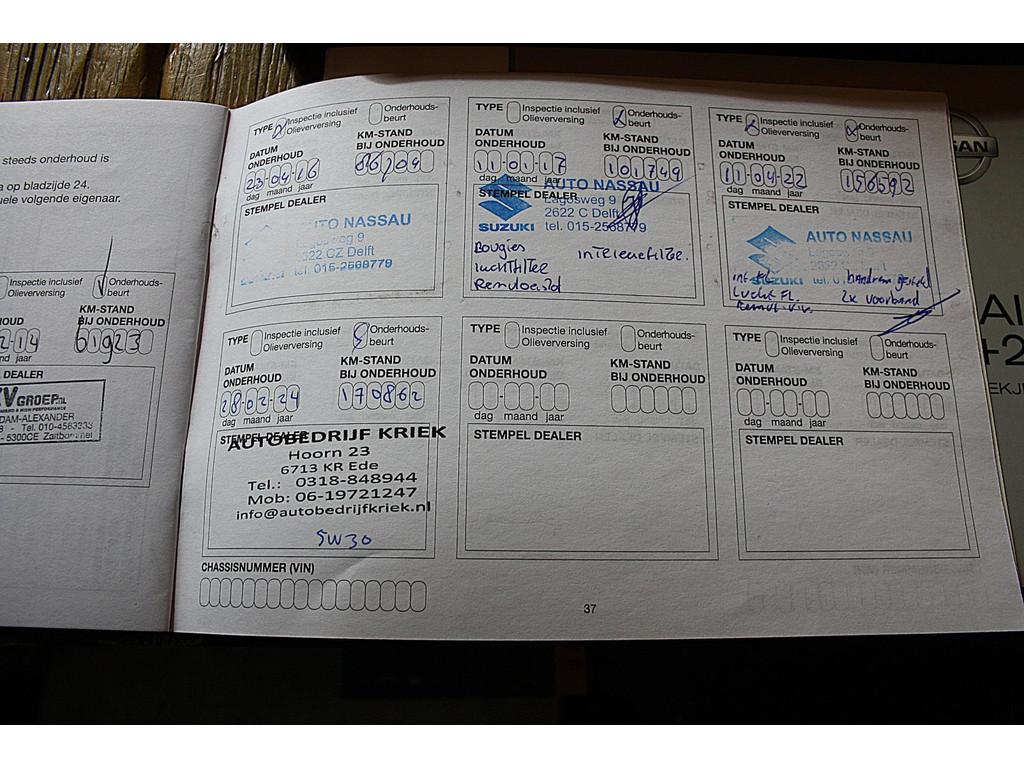 steeds onderhoud is
a op bladzijde 24.
uele volgende eigenaar.
Inspectie inclusief Olieverversing
Onderhouds-beurt
KM-STAND
BIJ ONDERHOUD
61923
nd jaar
DEALER
GROEP.NL
DAM-ALEXANDER
Tel. 010-4563333
5300CE Zaltbommel
TYPE Inspectie inclusief Olieverversing
Onderhouds-beurt
DATUM ONDERHOUD
KM-STAND BIJ ONDERHOUD
23-04-16
dag maand jaar
STEMPEL DEALER
AUTO NASSAU
Lagosweg 9
2622 CZ Delft
tel. 015-2568779
TYPE Inspectie inclusief Olieverversing
Onderhouds-beurt
DATUM ONDERHOUD
KM-STAND BIJ ONDERHOUD
11-01-17
101749
dag maand jaar
STEMPEL DEALER
AUTO NASSAU
Lagosweg 9
2622 C Delft
SUZUKI tel. 015-2568779
Bougies
interieurfilter.
luchtfilter
Remvloeistof
TYPE Inspectie inclusief Olieverversing
Onderhouds-beurt
DATUM ONDERHOUD
KM-STAND BIJ ONDERHOUD
11-04-22
156592
dag maand jaar
STEMPEL DEALER
AUTO NASSAU
SUZUKI
Lucht FL.
2x voorband
TYPE Inspectie inclusief Olieverversing
Onderhouds-beurt
DATUM ONDERHOUD
KM-STAND BIJ ONDERHOUD
28-02-24
170862
dag maand jaar
STEMPEL DEALER
AUTOBEDRIJF KRIEK
Hoorn 23
6713 KR Ede
Tel.: 0318-848944
Mob: 06-19721247
info@autobedrijfkriek.nl
5W30
TYPE Inspectie inclusief Olieverversing
Onderhouds-beurt
DATUM ONDERHOUD
KM-STAND BIJ ONDERHOUD
dag maand jaar
STEMPEL DEALER
TYPE Inspectie inclusief Olieverversing
Onderhouds-beurt
DATUM ONDERHOUD
KM-STAND BIJ ONDERHOUD
dag maand jaar
STEMPEL DEALER
CHASSISNUMMER (VIN)
37
SAN